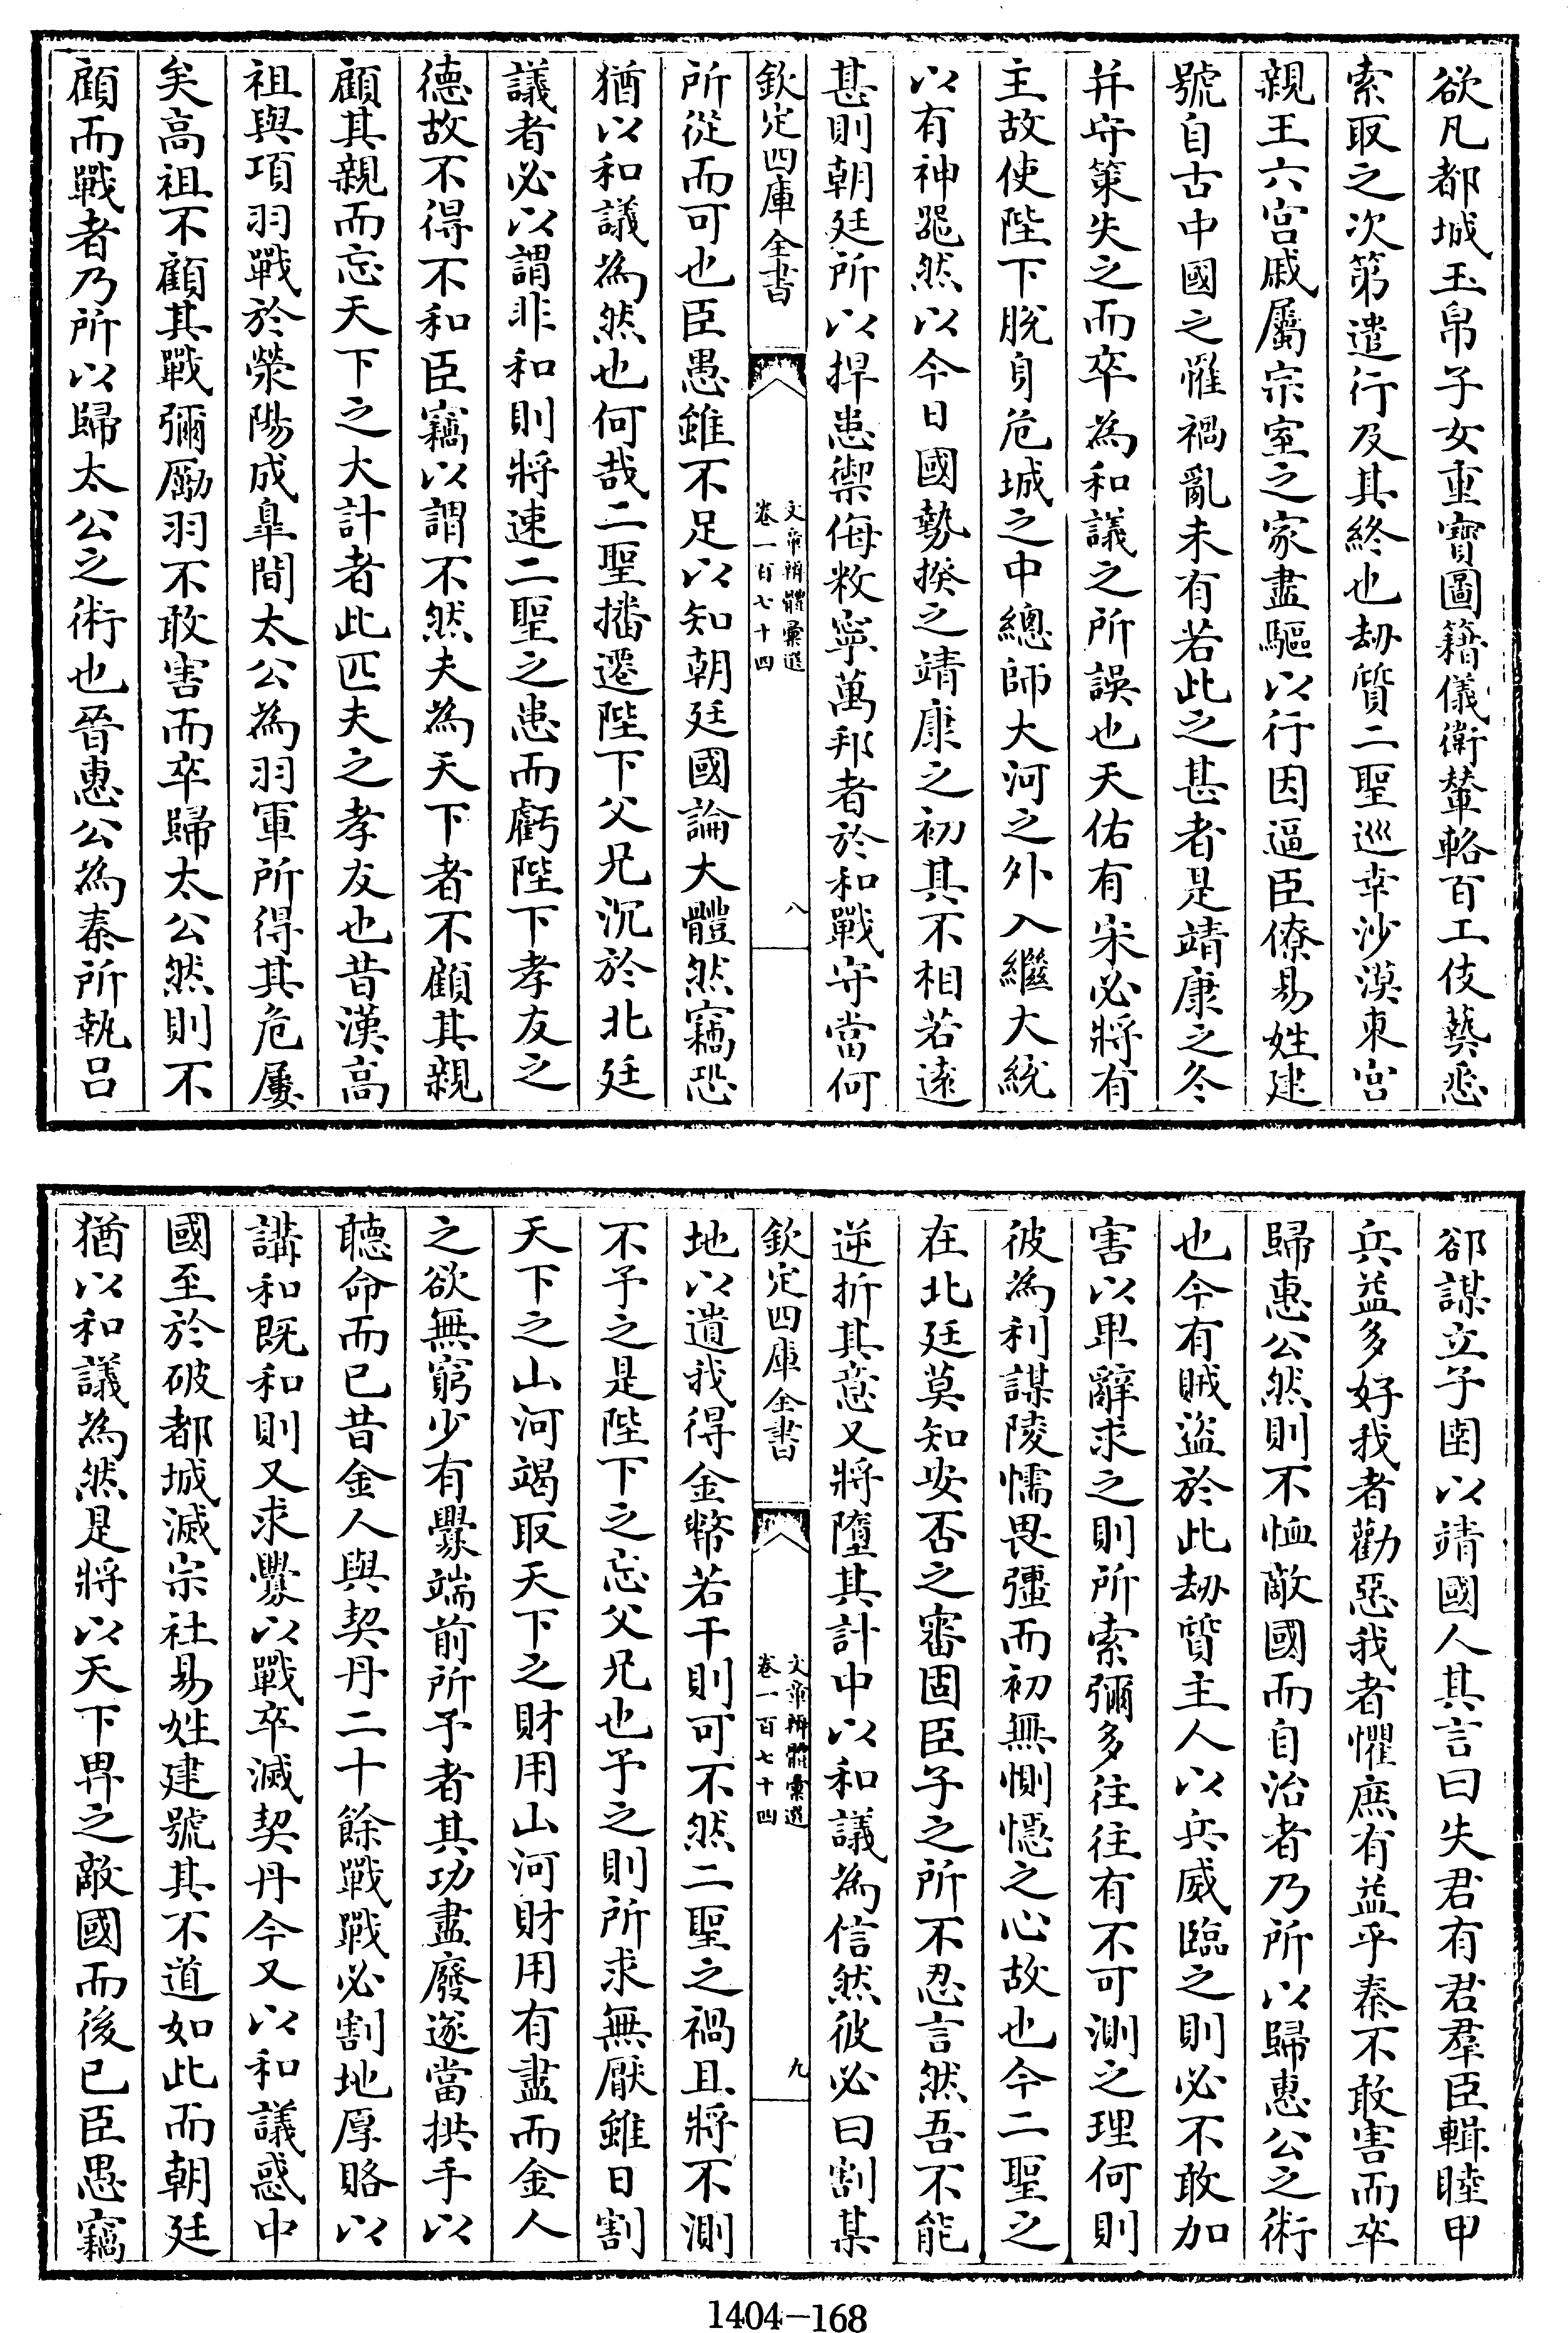 欲凡都城玉帛子女重寳圖籍儀衛輦輅百工伎藝悉
索取之次第遣行及其終也刼質二聖巡幸沙漠東宫
親王六宫戚屬宗室之家盡驅以行因逼臣僚易姓建
號自古中國之罹禍亂未有若此之甚者是靖康之冬
并守策失之而卒為和議之所誤也天佑有宋必將有
主故使陛下脱身危城之中總師大河之外入繼大統
以有神噐然以今日國勢揆之靖康之初其不相若逺
甚則朝廷所以捍患禦侮敉寧萬邦者於和戰守當何
欽定四庫全書
文章辨體彚選
卷一百七十四
八
所從而可也臣愚雖不足以知朝廷國論大體然竊恐
猶以和議為然也何哉二聖播遷陛下父兄沉於北廷
議者必以謂非和則將速二聖之患而虧陛下孝友之
德故不得不和臣竊以謂不然夫為天下者不顧其親
顧其親而忘天下之大計者此匹夫之孝友也昔漢高
祖與項羽戰於滎陽成臯間太公為羽軍所得其危屢
矣高祖不顧其戰彌勵羽不敢害而卒歸太公然則不
顧而戰者乃所以歸太公之術也晉惠公為秦所執呂
郤謀立子圉以靖國人其言曰失君有君羣臣輯睦甲
兵益多好我者勸惡我者懼庶有益乎秦不敢害而卒
歸惠公然則不恤敵國而自治者乃所以歸惠公之術
也今有賊盜於此刼質主人以兵威臨之則必不敢加
害以卑辭求之則所索彌多往往有不可測之理何則
彼為利謀陵懦畏彊而初無惻隱之心故也今二聖之
在北廷莫知安否之審固臣子之所不忍言然吾不能
逆折其意又將墮其計中以和議為信然彼必曰割某
欽定四庫全書
文章辨體彚選
卷一百七十四
九
地以遺我得金幣若干則可不然二聖之禍且將不測
不予之是陛下之忘父兄也予之則所求無厭雖日割
天下之山河竭取天下之財用山河財用有盡而金人
之欲無窮少有釁端前所予者其功盡廢遂當拱手以
聽命而已昔金人與契丹二十餘戰戰必割地厚賂以
講和既和則又求釁以戰卒滅契丹今又以和議惑中
國至於破都城滅宗社易姓建號其不道如此而朝廷
猶以和議為然是將以天下畀之敵國而後已臣愚竊
1404-168